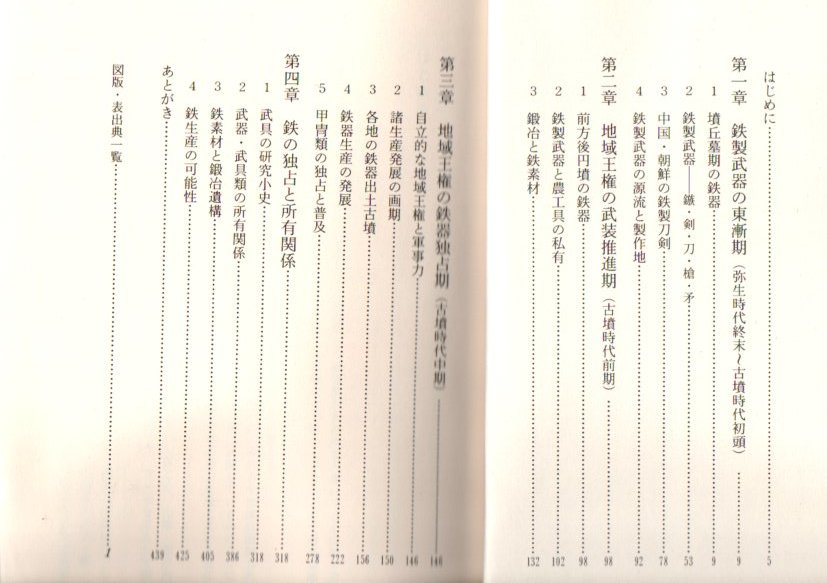 はじめに……………………5
第一章　鉄製武器の東漸期（弥生時代終末～古墳時代初頭）……9
1　墳丘墓期の鉄器……………………9
2　鉄製武器――鏃・剣・刀・槍・矛……………………53
3　中国・朝鮮の鉄製刀剣……………………78
4　鉄製武器の源流と製作地……………………92
第二章　地域王権の武装推進期（古墳時代前期）……………………98
1　前方後円墳の鉄器……………………98
2　鉄製武器と農工具の私有……………………102
3　鍛冶と鉄素材……………………132
第三章　地域王権の鉄器独占期（古墳時代中期）……………………146
1　自立的な地域王権と軍事力……………………146
2　諸生産発展の画期……………………150
3　各地の鉄器出土古墳……………………156
4　鉄器生産の発展……………………222
5　甲冑類の独占と普及……………………278
第四章　鉄の独占と所有関係……………………318
1　武具の研究小史……………………318
2　武器・武具類の所有関係……………………386
3　鉄素材と鍛冶遺構……………………405
4　鉄生産の可能性……………………425
あとがき……………………439
図版・表出典一覧……………………1